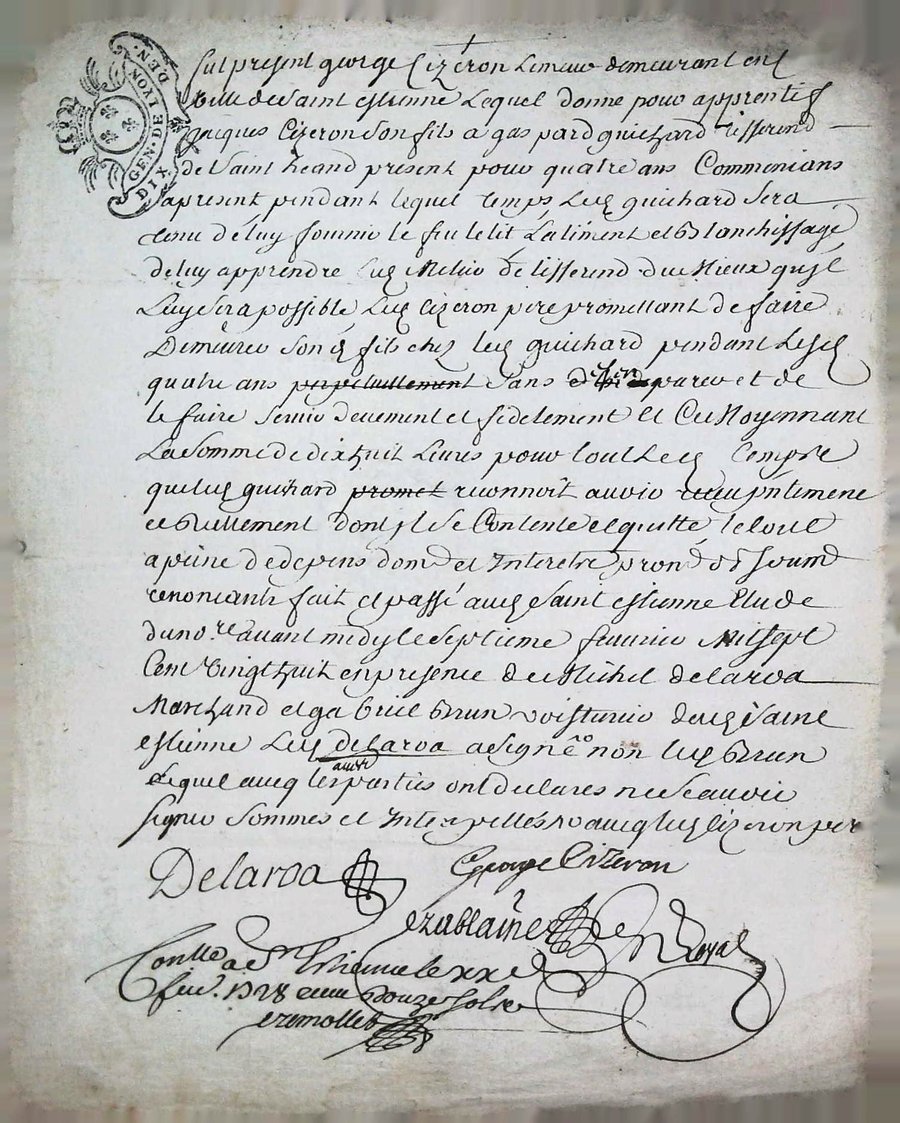 GEN. DE LYON
DIX DEN.
fut present george Cizeron Lineur demeurant en
ville de Saint estienne Lequel donne pour apprentif
jacques Cizeron son fils a gaspard guichard tisserend
de Saint heand present pour quatre ans Commencans
apresent pendant lequel temps Led guichard Sera
tenu de luy fournir le feu le lit Laliment et Blanchissage
de luy apprendre led Metier de tisserend du Mieux quil
Luy Sera possible Led cizeron pere promettant de faire
Demeurer Son d fils chez led guichard pendant Lesd
quatre ans perpetuellement Sans separer et de
le faire Servir deuement et fidelement et Ce Moyennant
La Somme de dixhuit Livres pour tout Led temps
que led guichard promet reconnoit avoir receu pntement
et reellement dont jl Se Contente et quitte le tout
a peine de depens dom et Interets prom ob Soum
renoncants fait et passé aud Saint estienne Etude
du no.re avant midy le Septieme fevrier Mil Sept
Cent Vingt huit en presence de Michel delaroa
Marchand et gabriel Brun voisturier dud Saint
estienne Led delaroa a signé non led Brun
Lequel avec les parties ont declares ne Scavoir
Signer Sommes et Interpellés avec led Cizeron per
aussi
Delaroa
George Cizeron
ezablaine
no Royal
Conlle a St Etienne le xxe
fev. 1728 douze Sols
ezemollet